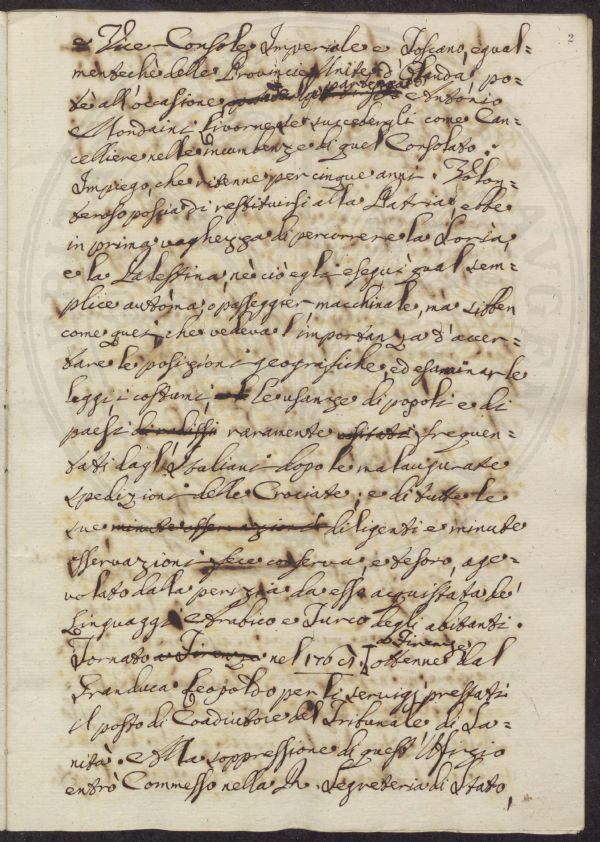 2
e Vice-Console Imperiale e Toscano, egual=
mentechè delle Provincie Unite d'Olanda, po=
tè all'occasione Antonio
Mondaini Livornese succedergli come Can=
celliere nelle incumbenze di quel Consolato.
Impiego, che ritenne per cinque anni. Volon=
teroso poscia di restituirsi alla Patria, ebbe
in prima vaghezza di percorrere la Soria,
e la Palestina, nè ciò egli eseguì qual sem=
plice automa, o passeggier macchinale, ma sibben
come quei, che vedeva l'importanza d'accer=
tare le posizioni geografiche, ed esaminar le
leggi, i costumi, le usanze di popoli e di
paesi raramente frequen=
tati dagl'Italiani dopo le malaugurate
spedizioni delle Crociate; e di tutte le
sue minute osservazioni diligenti e minute
osservazioni fece conserva, e tesoro, age=
volato dalla perizia da esso acquistata de'
Linguaggi Arabico e Turco degli abitanti.
Tornato a Firenze nel a Firenze ottenne dal
Granduca Leopoldo per li servigj prestati
il posto di Coadiutore del Tribunale di Sa=
nità. Alla soppressione di quest'Uffizio
entrò Commesso nella R. Segreteria di Stato,